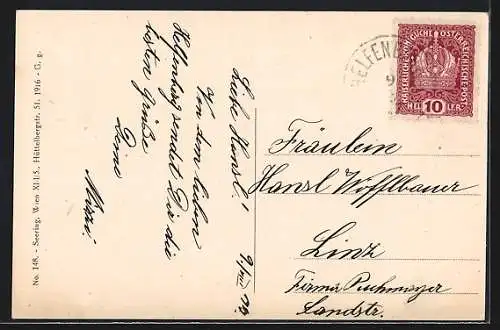 No. 148. - Seering, Wien XIII/5., Hüttelbergstr. 51. 1916 - G. g.
Liebe Hansl!
Von dem lieben
Helfenberg sendet Dir die
besten Grüße
Deine
Mitzi.
HELFENBE
KAISERLICHE KÖNIGLICHE ÖSTERREICHISCHE POST
HELLER 10 HELLER
Fräulein
Hansl Wofflbauer
Linz
Firma Puchmayer
Landstr.